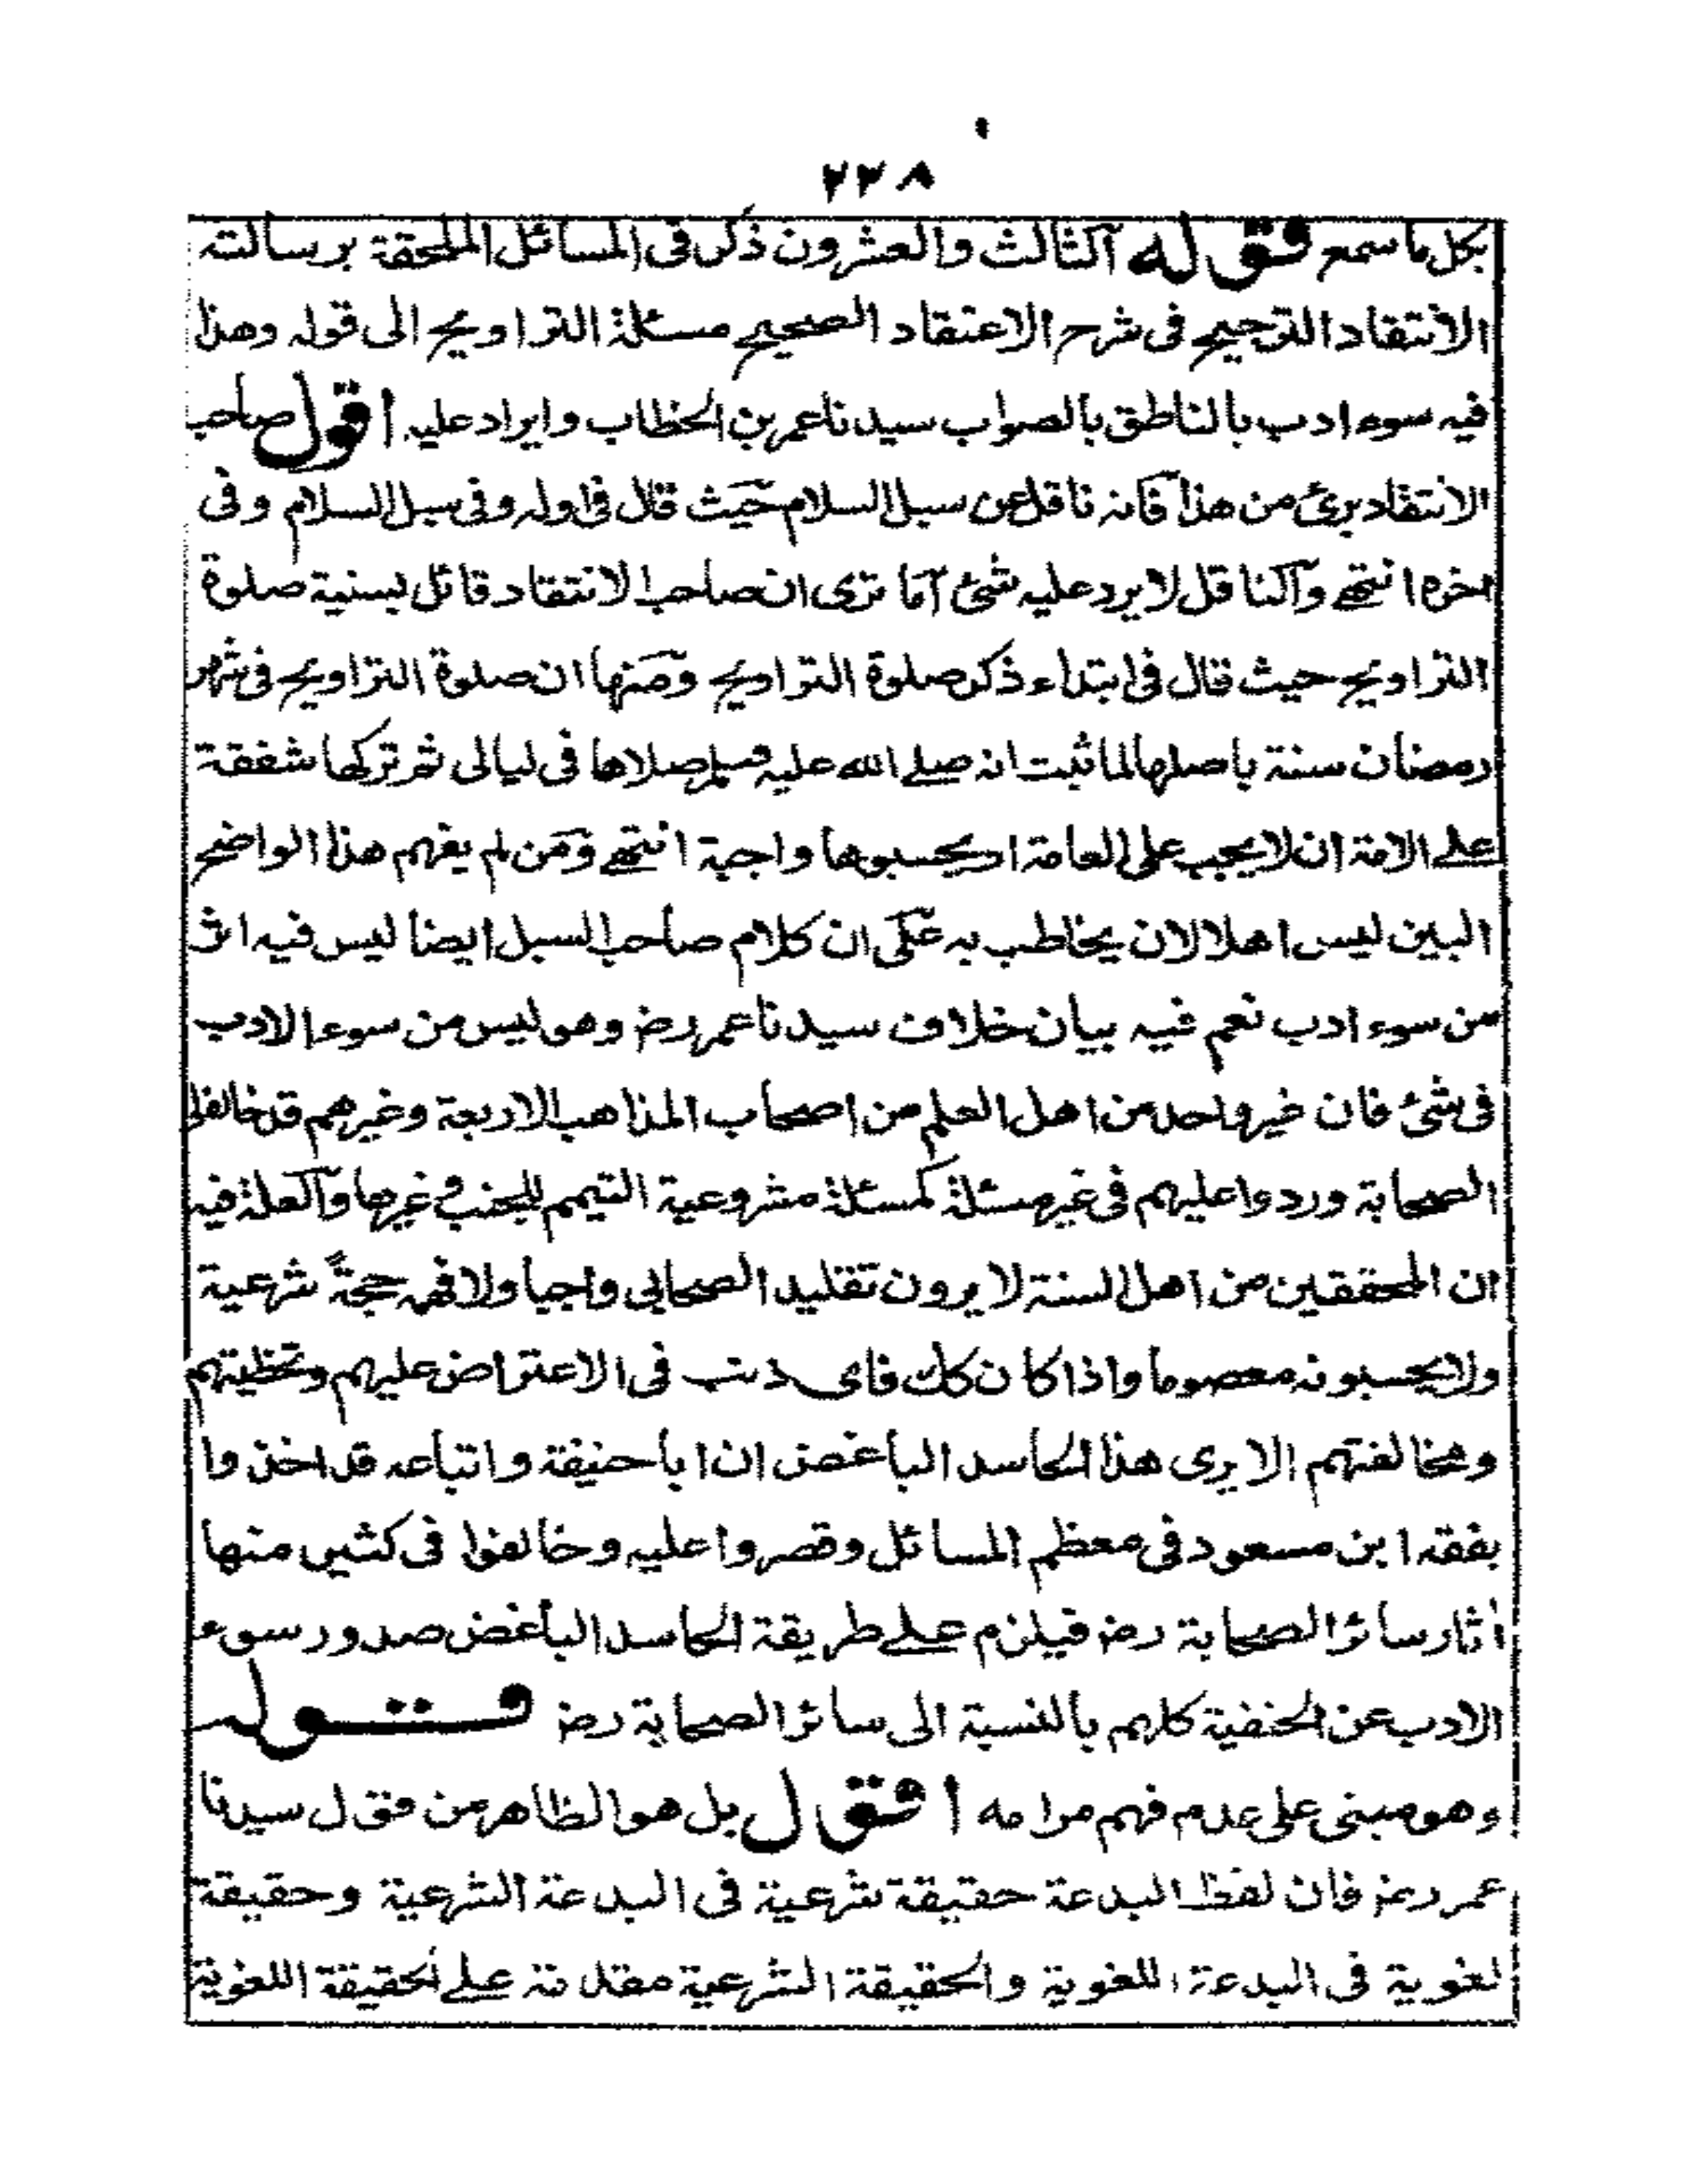 ٢٢٨
بكل ما سمع قوله الثالث والعشرون ذكر فى المسائل الملحقة برسالته
الانتقاد الترجيح فى شرح الاعتقاد الصحيح مسئلة التراويح الى قوله وهذا
فيه سوء ادب بالناطق بالصواب سيدنا عمر بن الخطاب وايراد عليه اقول صاحب
الانتقاد برئ من هذا فانه ناقل عن سبل السلام حيث قال فى اوله وفى سبل السلام وفى
اخره انتهى والناقل لا يرد عليه شئ اما ترى ان صاحب الانتقاد قائل بسنية صلوة
التراويح حيث قال فى ابتداء ذكر صلوة التراويح ومنها ان صلوة التراويح فى شهر
رمضان سنة باصلها لما ثبت انه صلے الله عليه وسلم صلاها فى ليالى ثم تركها شفقة
علے الامة ان لا يجب على العامة او يحسبوها واجبة انتهى ومن لم يفهم هذا الواضح
البين ليس اهلا لان يخاطب به على ان كلام صاحب السبل ايضا ليس فيه اثر
من سوء ادب نعم فيه بيان خلاف سيدنا عمر رض وهو ليس من سوء الادب
فى شئ فان غير واحد من اهل العلم من اصحاب المذاهب الاربعة وغيرهم قد خالفوا
الصحابة وردوا عليهم فى غير مسئلة كمسئلة مشروعية التيمم للجنب وغيرها والعلة فيه
ان المحققين من اهل السنة لا يرون تقليد الصحابى واجبا ولا فهمه حجةً شرعية
ولا يحسبونه معصوما واذا كان كك فاى ذنب فى الاعتراض عليهم وتخطيتهم
ومخالفتهم الا يرى هذا الحاسد الباغض ان ابا حنيفة واتباعه قد اخذوا
بفقه ابن مسعود فى معظم المسائل وقصروا عليه وخالفوا فى كثير منها
اثار سائر الصحابة رض فيلزم علے طريقة الحاسد الباغض صدور سوء
الادب عن الحنفية كلهم بالنسبة الى سائر الصحابة رض قوله
وهو مبنى على عدم فهم مرامه اقول بل هو الظاهر من قول سيدنا
عمر رض فان لفظ البدعة حقيقة شرعية فى البدعة الشرعية وحقيقة
لغوية فى البدعة اللغوية والحقيقة الشرعية مقدمة علے الحقيقة اللغوية